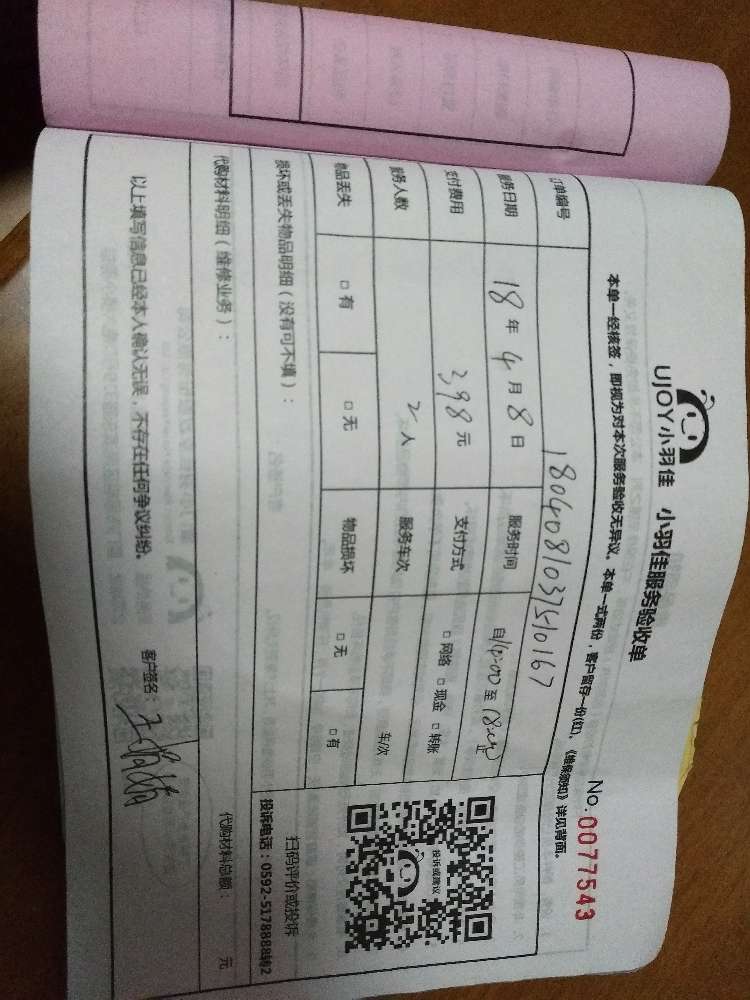 UJOY小羽佳 小羽佳服务验收单
No.0077543
本单一经核签，即视为对本次服务验收无异议。本单一式两份，客户留存一份(红)，《维保须知》详见背面。
订单编号
服务日期 18年4月8日 服务时间
支付费用 398元 支付方式 □网络 □现金 □转账
服务人数 2人 服务车次 车/次
物品丢失 □有 □无 物品损坏 □无 □有
投诉或建议
扫码评价或投诉
投诉电话：0592-5178888转2
损坏或丢失物品明细（没有可不填）：
代购材料明细（维修业务）： 代购材料总额： 元
以上填写信息已经本人确认无误，不存在任何争议纠纷。 客户签名：